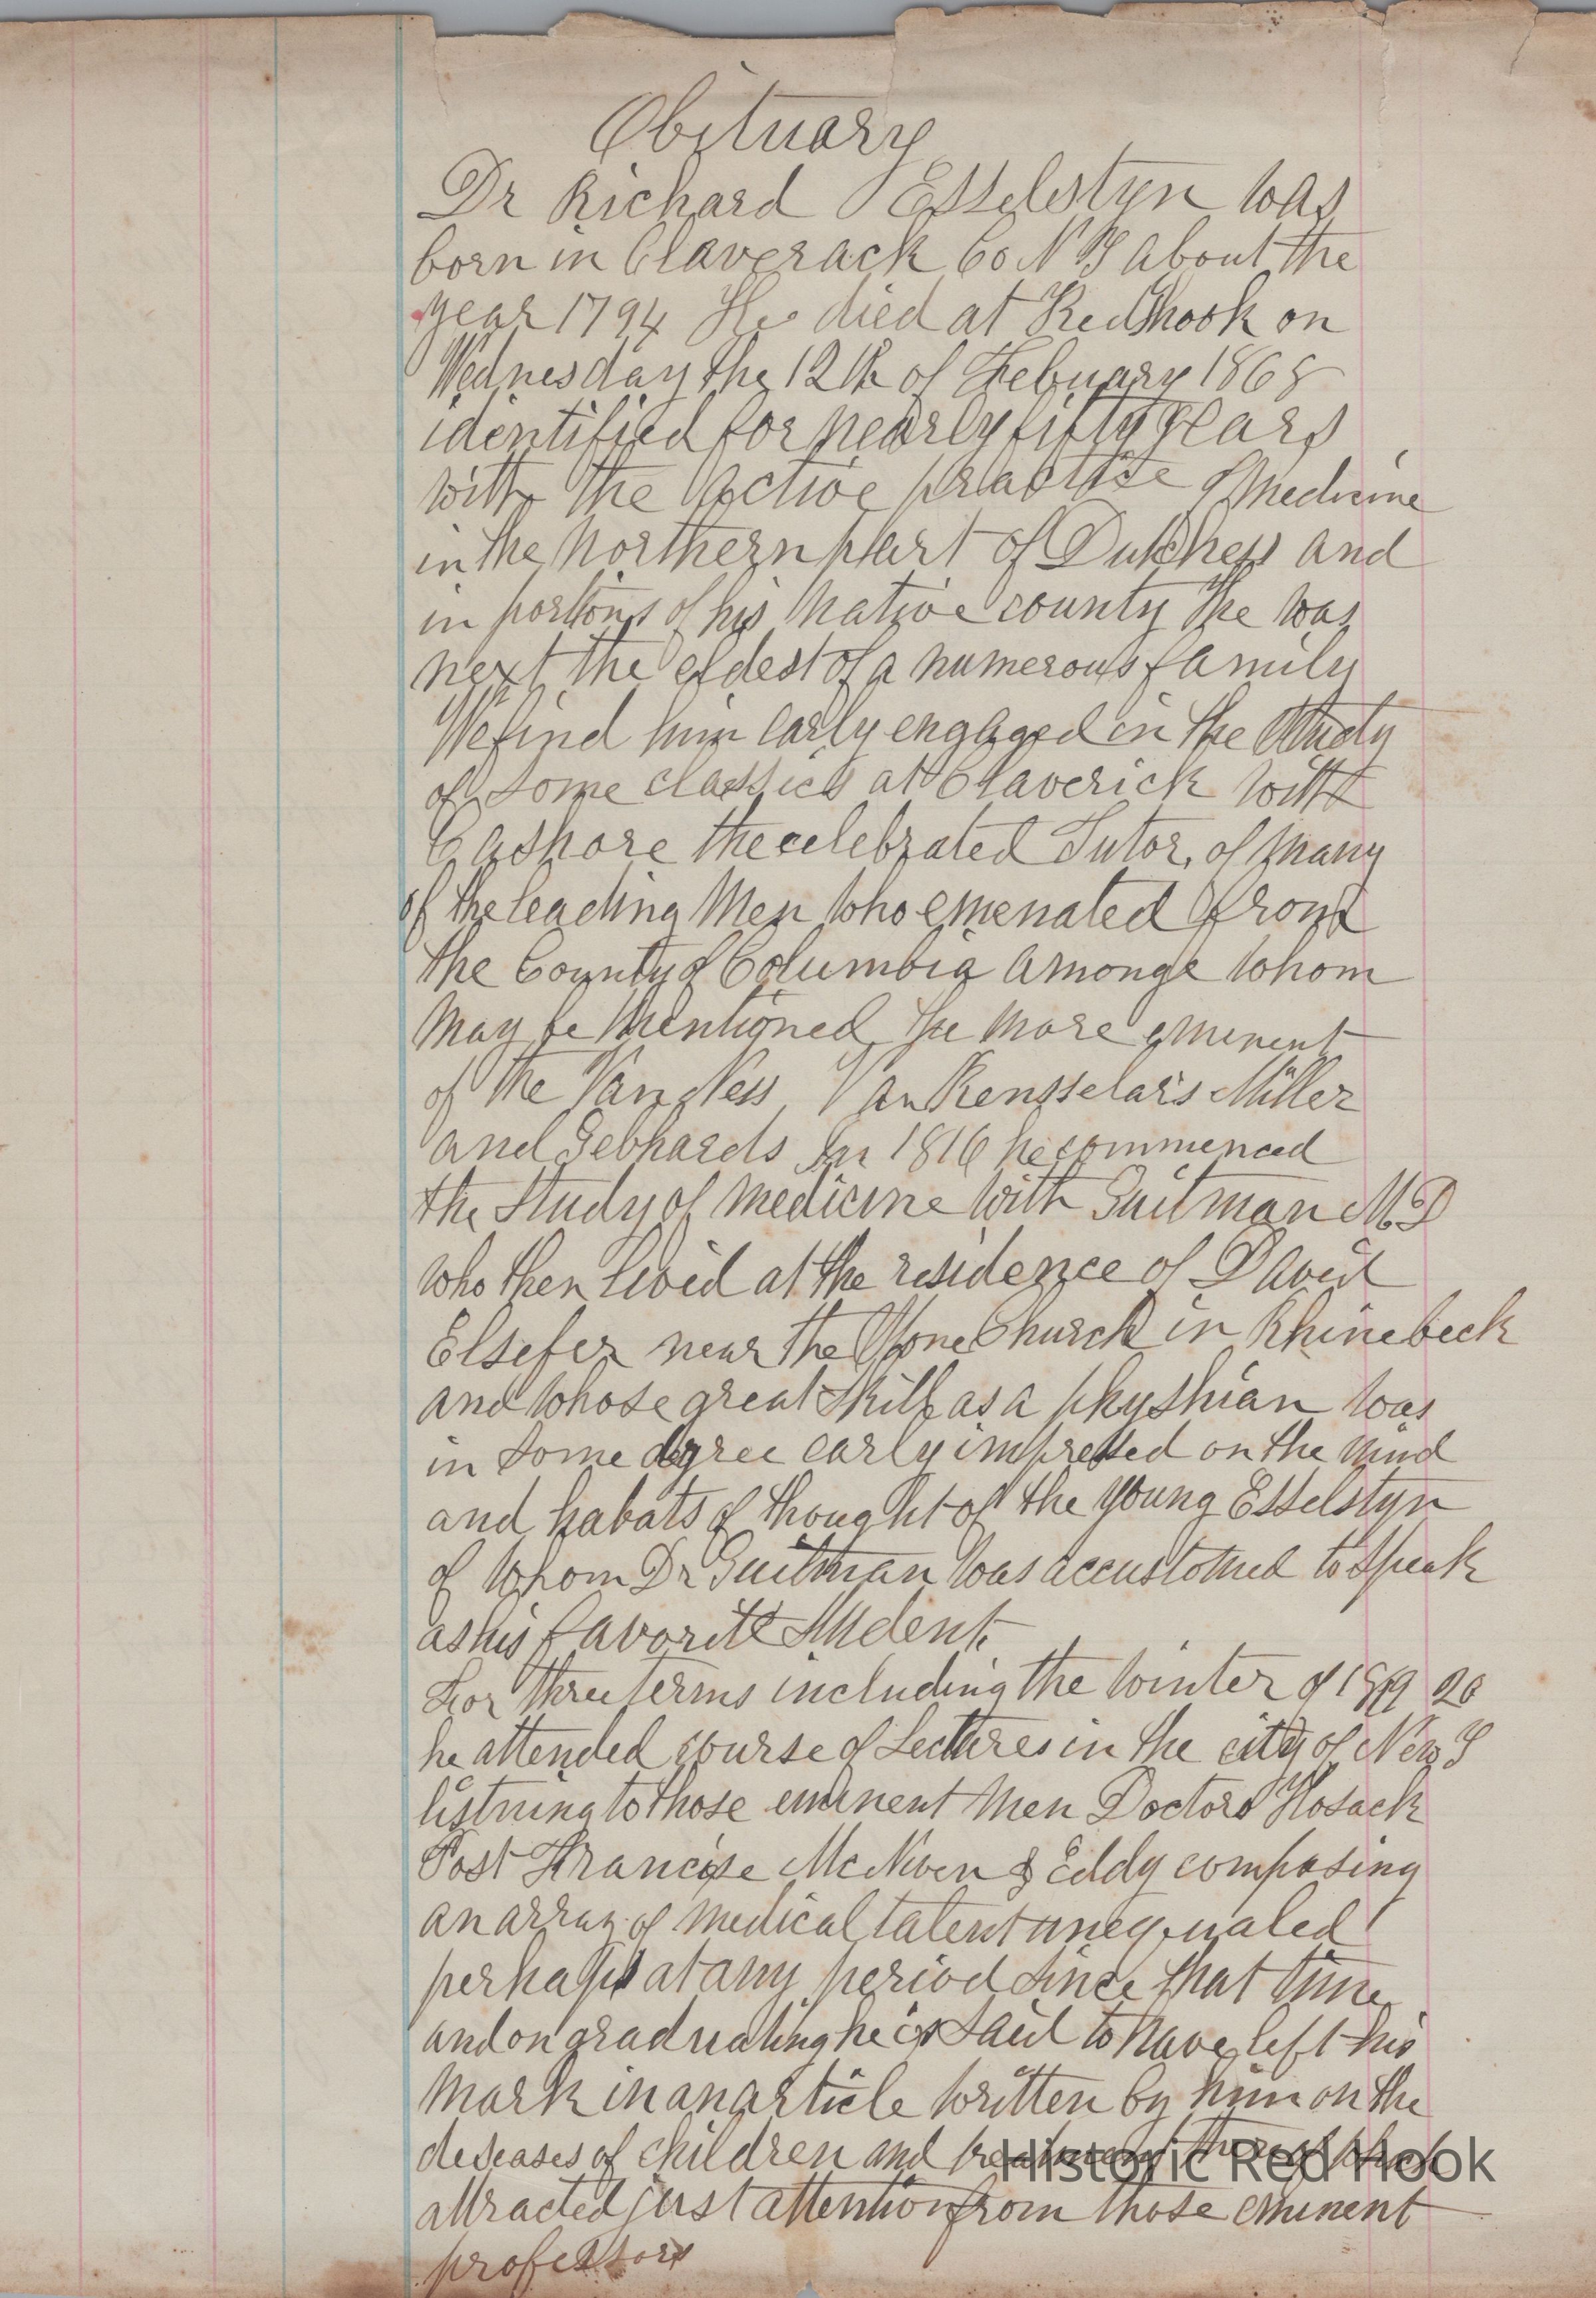 Obituary
Dr Richard Esselstyn was
born in Claverack Co N Y about the
year 1794 He died at Redhook on
Wednesday the 12th of Febuary 1868
identified for nearly fifty years
with the active practise of Medicine
in the Northern part of Dutchess and
in portions of his native county He was
next the eldest of a numerous family
We find him early engaged in the Study
of some classics at Claverick with
Cashore the celebrated Tutor, of many
of the leading Men who emenated from
the County of Columbia amonge whom
may be mentioned the more eminent
of the Van Ness, Van Rensselars Miller
and Gebhards In 1816 he commenced
the Study of medicine with Guitman M.D
who then lived at the residence of David
Elsefer near the Stone Church in Rhinebeck
and whose great Skill as a physhian was
in some degree early impressed on the mind
and habats of thought of the young Esselstyn
of whom Dr Guitman was accustomed to speak
as his favorite Student.
For three terms including the winter of 1819 20
he attended course of Lectures in the city of New Y
listning to those eminent men Doctors Hosack
Post Francise McNiven & Eddy composing
an array of medical talent unequaled
perhaps at any period since that time
and on graduating he is said to have left his
mark in an article written by him on the
deseases of children and treatment thereof which
attracted just attention from those eminent
professors
Historic Red Hook